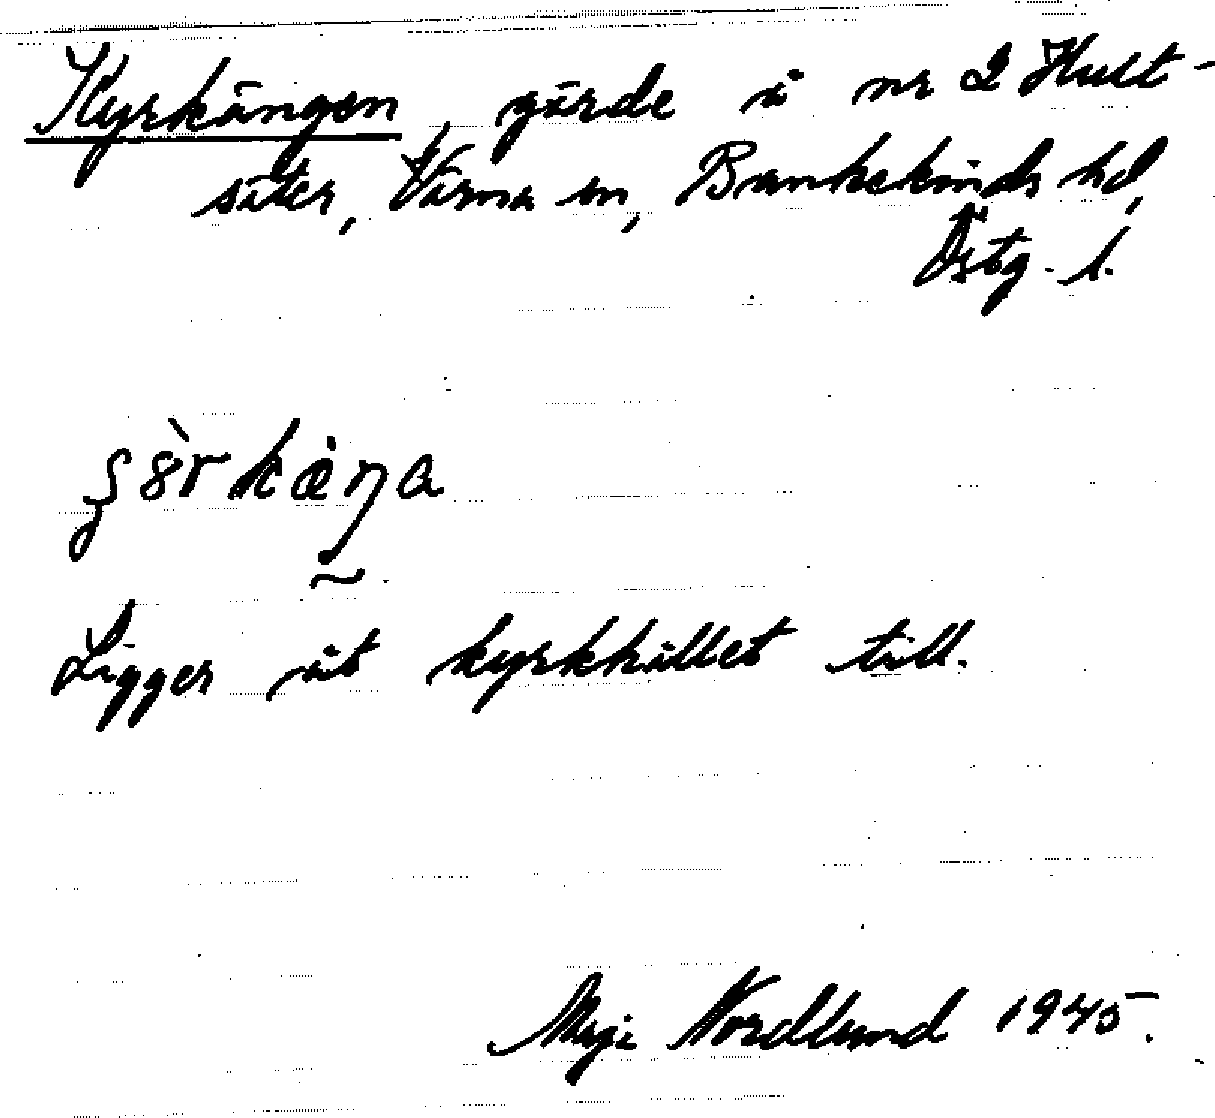 Kyrkängen, gärde i nr 2 Hult-
säter, Värna sn, Bankekinds hd,
Östg. l.
Ligger åt kyrkhållet till.
Maje Nordlund 1945.